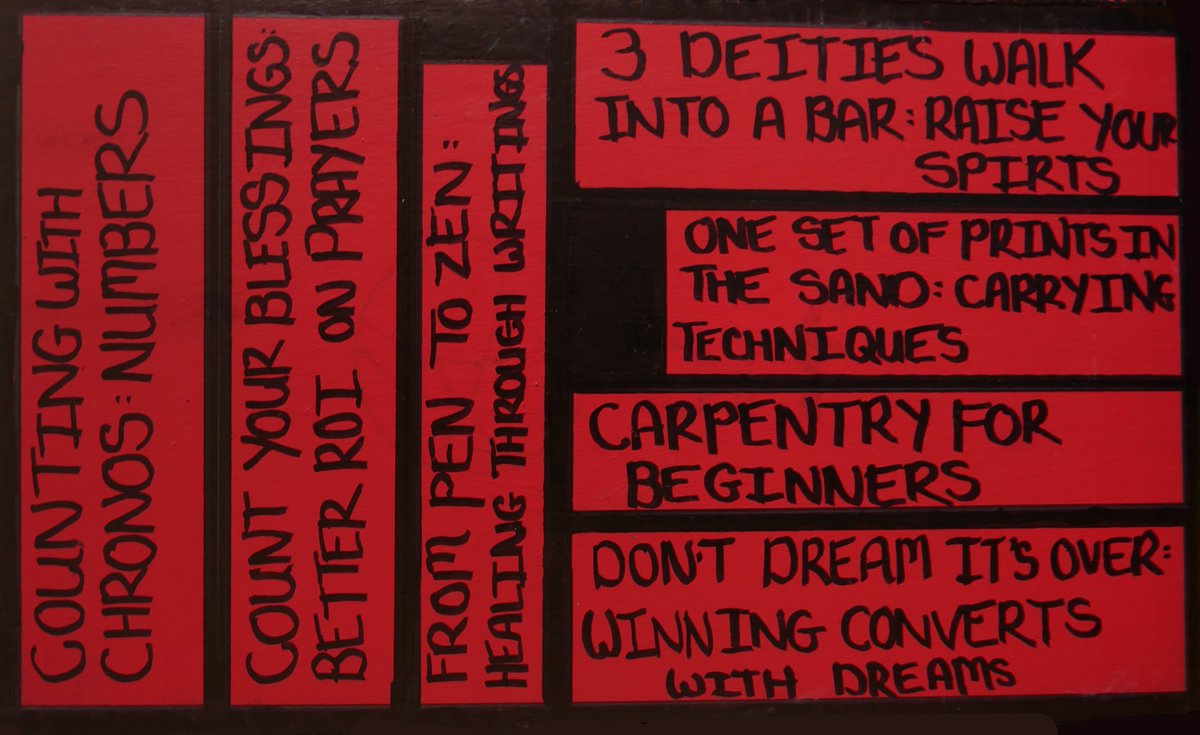 COUNTING WITH
CHRONOS: NUMBERS
COUNT YOUR BLESSINGS:
BETTER ROI ON PRAYERS
FROM PEN TO ZEN:
HEALING THROUGH WRITINGS
3 DEITIES WALK
INTO A BAR: RAISE YOUR
SPIRTS
ONE SET OF PRINTS IN
THE SAND: CARRYING
TECHNIQUES
CARPENTRY FOR
BEGINNERS
DON'T DREAM IT'S OVER:
WINNING CONVERTS
WITH DREAMS